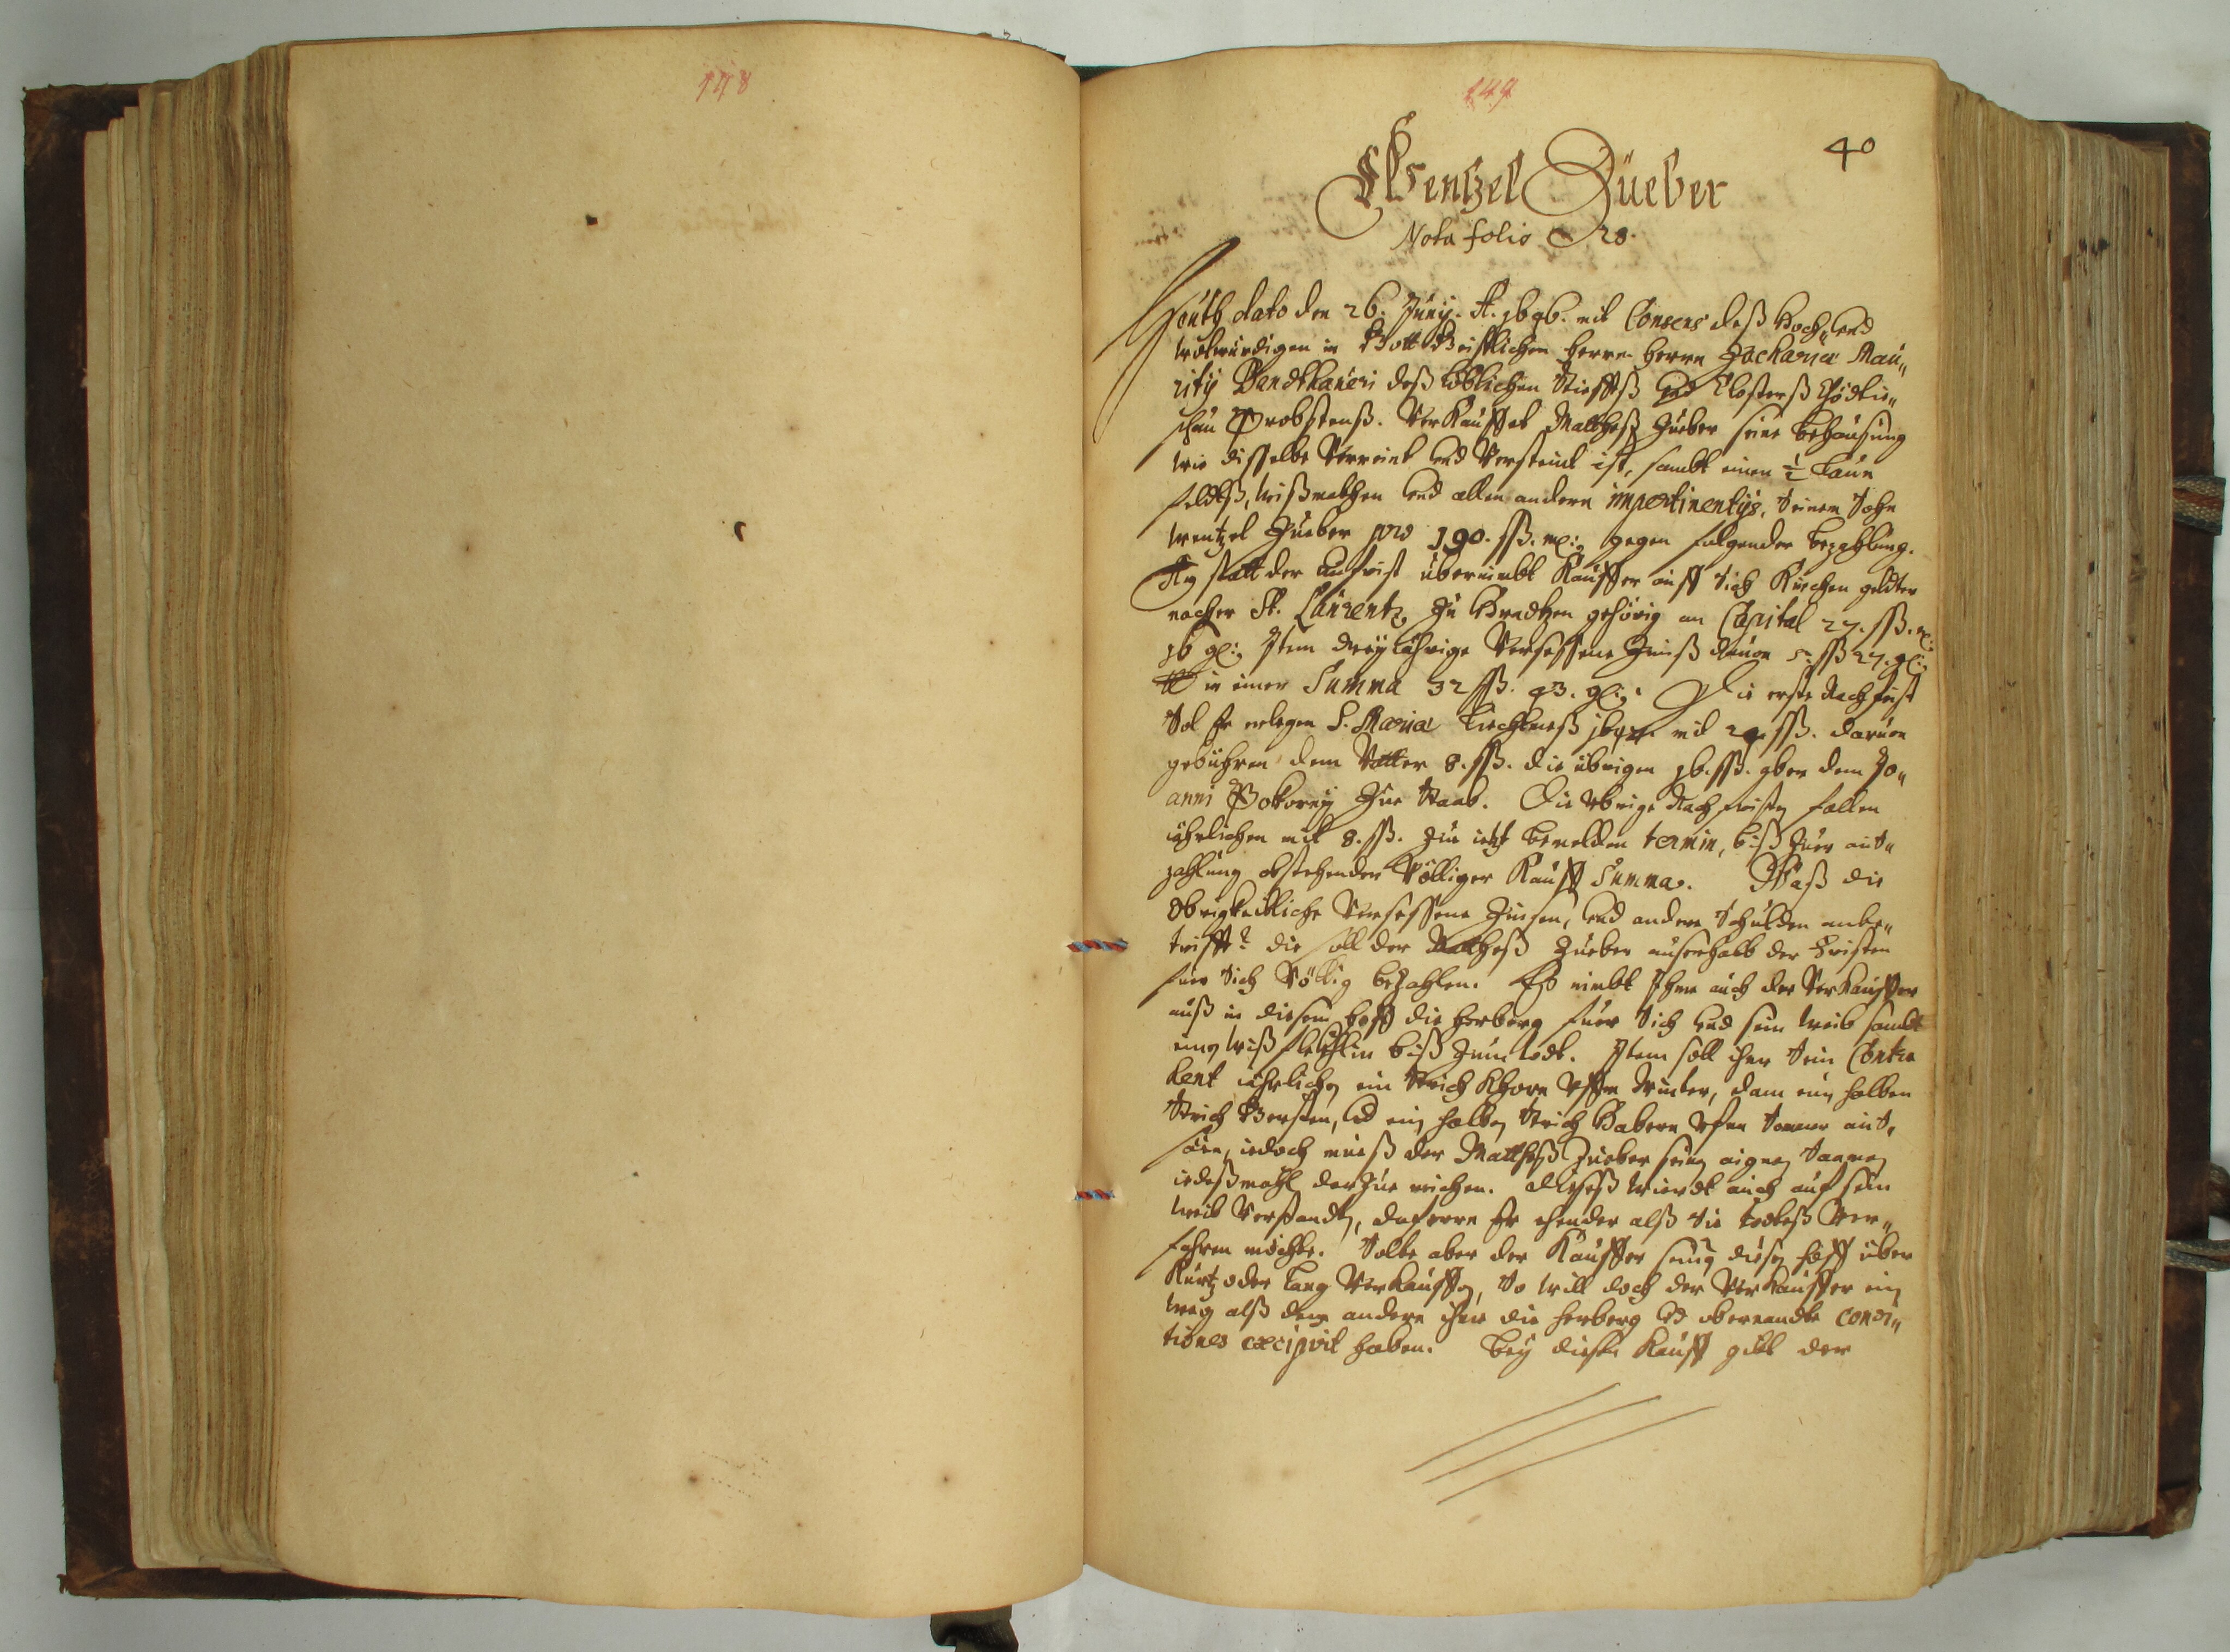 148
149
40
Wentzel Zueber
Nota folio 28.
Heuth dato den 26. Junij. A. 1696. mit Consens deß Hoch„ und
wolwürdigen in Gott Geistlichen Herrn Herrn Zachariæ Mau„
ritij deß Löblichen Stieffts und Closters
schau Probstens. Verkauffet Matthesß Zueber seine Behausung
wie disselbe Verreint und Versteint ist, sambt einen ½ Laün
feldtß, wißmathen und allen andern impertinentijs, seinem Sohn
Wentzel Zueber pro 190. ßß. gegen folgender Bezahlung.
An statt der anfrist übernimbt Kauffer auff sich Kirchen geldter
nacher St. Laurentz zu gehörig an Capital 27. ßß.
16 gl: Item dreyjährige Versessene Zinß dauon 5. ßß 27. gl:
in einer Summa 32 ßß. 43. gl: Die erste Nachfrist
Sol Er erlegen S. Mariæ Liechtmeß mit 24 ßß. daruon
gebühren dem Vatter 8. ßß. die übrigen 16. ßß. aber dem Jo„
anni Pokorny Zue Staab. Die übrige Nachfristen fallen
iährlichen mit 8. ßß. zue ietzt bemelden termin, biß zuer auß„
zahlung obstehender Völliger Kauff Summa. Waß die
Obrigkeitliche Versessene Zinsen, und andere Schulden anbe„
trifft? die soll der Matthesß Zueber ausserhalb der Fristen
fuer sich Völlig bezahlen. Es nimbt Ihme auch der Verkauffer
auß in diesem Hoff die Herberg fuer sich und sein Weib sambt
eing wiß flekhlin biß zum todt. Item soll ihm sein Contra
hent iährlichen ein Strich Khorn yber Winter, dann ein halben
Strich Gersten, und ein halben Strich Habern yber Sommer auß„
säen, iedoch mueß der Matthesß Zueber seinen aignen Saamen
iedeßmahl darzue reichen. Dieseß wierdt auch auf sein
Weib Verstanden, daferne Er ehender alß Sie todteß Ver„
fahren möchte. Solte aber der Kauffer seinen diesen Hoff über
Kurtz oder Lang Verkauffen, so will doch der Verkauffer ein
weg alß den andern ihme die Herberg und obernandte condi„
tiones excipirt haben. Bey diesen Kauff gibt der